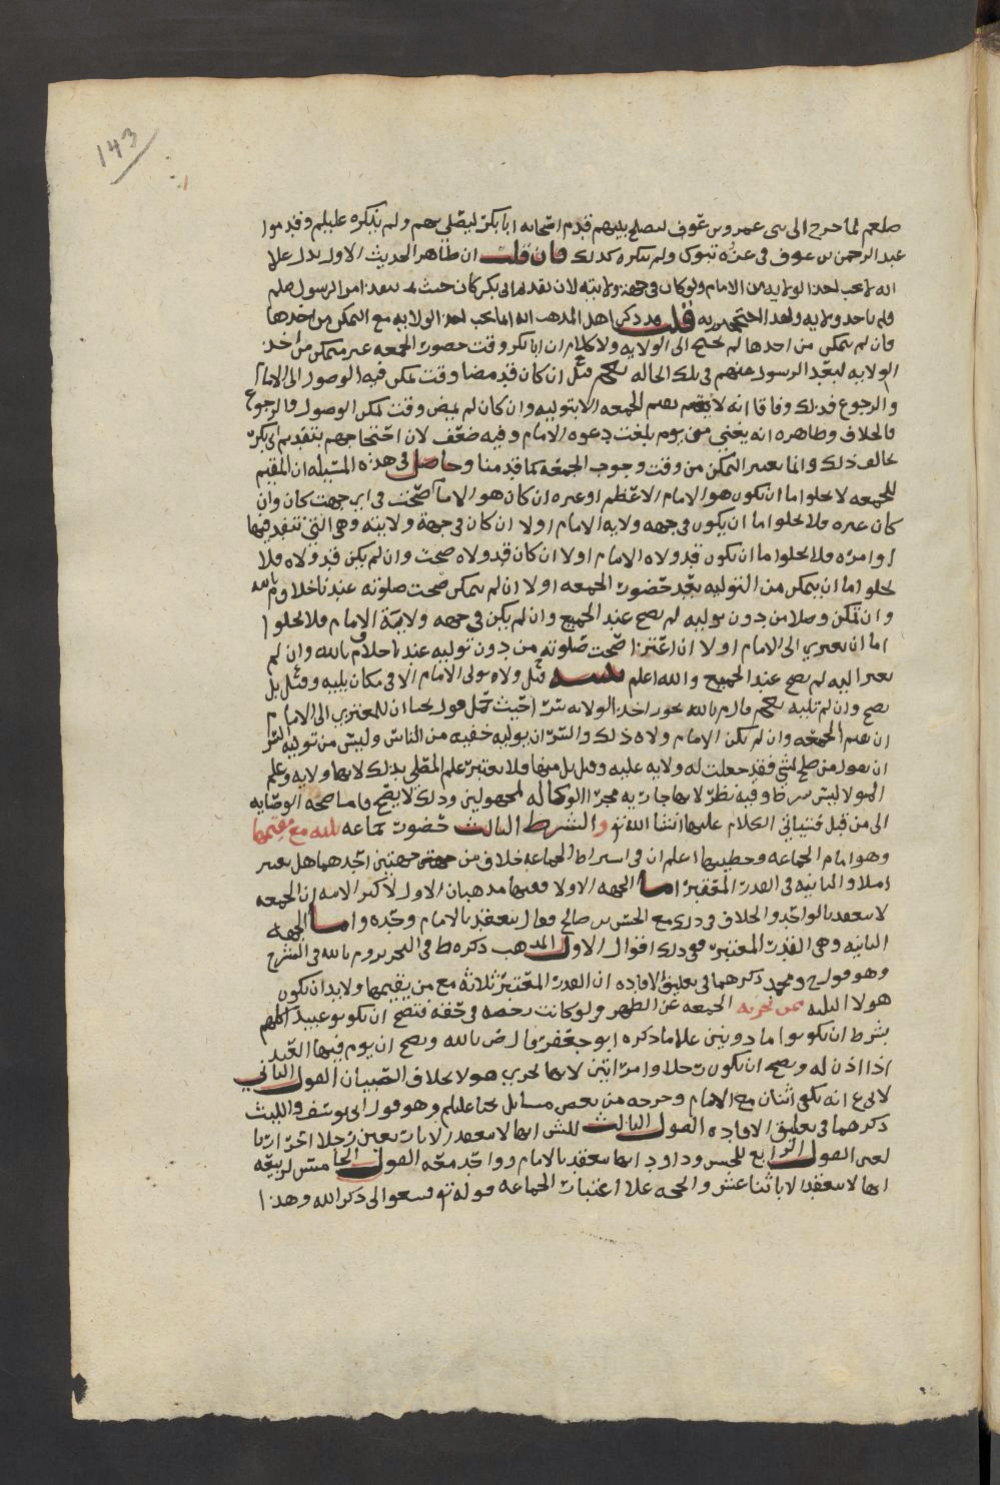 143
صلعم لما خرج الى بنى عمرو بن عوف ليصلح بينهم قدم اصحابه ابا بكر ليصلى بهم ولم ينكره عليلم وقدموا
عبد الرحمن بن عوف فى غزوه تبوك ولم ينكره كذلك فان قلت ان ظاهر الحديث الاول يدل على
انه لا يجب اخذ الولايه من الامام ولو كان فى جهة ولايته لان تقدم ابى بكر كان حيث تنفذ اوامر الرسول صلم
ولم ياخذ ولايه قلت قد ذكر اهل المذهب انه انما يجب اخذ الولايه مع التمكن من اخذها
فان لم يتمكن من اخذها لم يحتج الى الولايه ولا كلام ان ابا بكر وقت حضور الجمعه غير متمكن من اخذ
الولايه لبعد الرسول عنهم فى تلك الحاله قيل ان كان قد مضا وقت تمكن فيه الوصول الى الامام
والرجوع فذلك وفاقا انه لا يقيم الجمعه الا بتوليه وان كان لم يمض وقت تمكن الوصول والرجوع
فالخلاف وظاهره انه يعنى من يوم بلغت دعوه الامام وفيه ضعف لان احتجاجهم بتقديم ابى بكر
يخالف ذلك وانما يعتبر التمكن من وقت وجوب الجمعه كما قدمنا وحاصل فى هذه المسيله ان المقيم
للجمعه لا يخلوا اما ان يكون هو الامام الاعظم او غيره ان كان هو الامام صحت فى اى جهت كان وان
كان غيره فلا يخلوا اما ان يكون فى جهه ولايه الامام اولا ان كان فى جهة ولايته وهى التى تنفذ فيها
اوامره فلا يخلوا اما ان يكون قد ولاه الامام اولا ان كان قد ولاه صحت وان لم يكن قد ولاه فلا
يخلوا اما ان يتمكن من التوليه بعد حضور الجمعه اولا ان لم يتمكن صحت صلوته عندنا خلاف م بالله
وان تمكن وصلا من دون توليه لم يصح عند الجميع وان لم يكن فى جهه ولاية الامام فلا يخلوا
اما ان يعتزى الى الامام اولا ان اعتزا صحت صلوته من دون توليه عندنا خلاف م بالله وان لم
يعتز اليه لم يصح عند الجميع والله اعلم تنبيه قيل ولاه مولى الامام الا فى مكان يليه وقيل بل
يصح وان لم يليه قال م بالله يجوز اخذ الولايه سرا
ان يقيم الجمعه وان لم يكن الامام ولاه ذلك والسر ان يوليه خفيه من الناس وليس من توليه السر
ان يقول من صلح لشى فقد جعلت له ولايه عليه وقيل بل منها فلا يعتبر علم المصلى بذلك لانها ولايه وعلم
المولا ليس شرطا وفيه نظر لانها جاريه مجرا الوكاله لمجهولين وذلك لا يصح فاما صحه الوصايه
الى من قبل فسياتى الكلام عليها انشا الله تع والشرط الثالث حضور جماعه ثلثه مع مقيمها
وهو امام الجماعه وخطيبها اعلم ان فى اشتراط الجماعه خلاف من جهتين احدهما هل يعتبر
ام لا والثانيه فى القدر المعتبر اما الجهه الاولا ففيها مذهبان الاول لاكثر الامه ان الجمعه
لا تنعقد بالواحد والخلاف فى ذلك مع الحسن بن صالح فقال تنعقد بالامام وحده واما الجهه
الثانيه وهى القدر المعتبر ففى ذلك اقوال الاول المذهب ذكره ط فى التحرير وم بالله فى الشرح
وهو قول ح ومحمد ذكرهما فى تعليق الافاده ان القدر المعتبر ثلاثه مع من يقيمها ولابد ان يكون
هولا الثلثه ممن تجزيه الجمعه عن الظهر ولو كانت رخصه فى حقه فتصح ان يكونو عبيد اكلهم
بشرط ان يكونوا ماذونين على ما ذكره ابو جعفر وال ض بالله ويصح ان يوم فيها العبد
اذا اذن له ويصح ان يكون رجلا وامراتين لانها تجزى هولا بخلاف الصبيان القول الثانى
لابى ع انه يكفى اثنان مع الامام وخرجه من بعض مسايل يحيا عليلم وهو قول ابى يوسف والليث
ذكرهما فى تعليق الافاده القول الثالث للش انها لا تنعقد الا باربعين رجلا احرارا
القول الرابع للحسن وداود انها تنعقد بالامام وواحد معه القول الخامس لربيعه
انها لا تنعقد الا باثنا عشر والحجه على اعتبار الجماعه قوله تع فسعوا الى ذكر الله وهذا